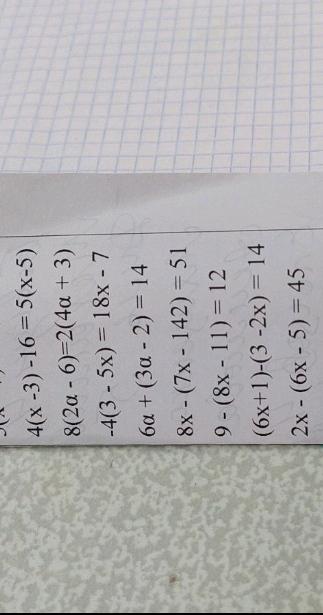 4(x -3) -16 = 5(x-5)
8(2a - 6)=2(4a + 3)
-4(3 - 5x) = 18x - 7
6a + (3a - 2) = 14
8x - (7x - 142) = 51
9 - (8x - 11) = 12
(6x+1)-(3 -2x) = 14
2x - (6x - 5) = 45